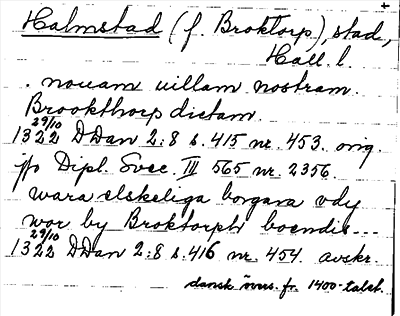 Halmstad (f. Broktorp), stad,
Hall. l.
. nouam uillam nostram.
Brookthorp dictam.
29/10
1322 DDan 2:8 s. 415 nr. 453. orig.
jfo Dipl. Svec. III 565 nr. 2356.
wara elskeliga borgara vdy
wor by Broktorph boendis...
29/10
1322 DDan 2:8 s. 416 nr. 454. avskr.
dansk övers. fr. 1400-talet.